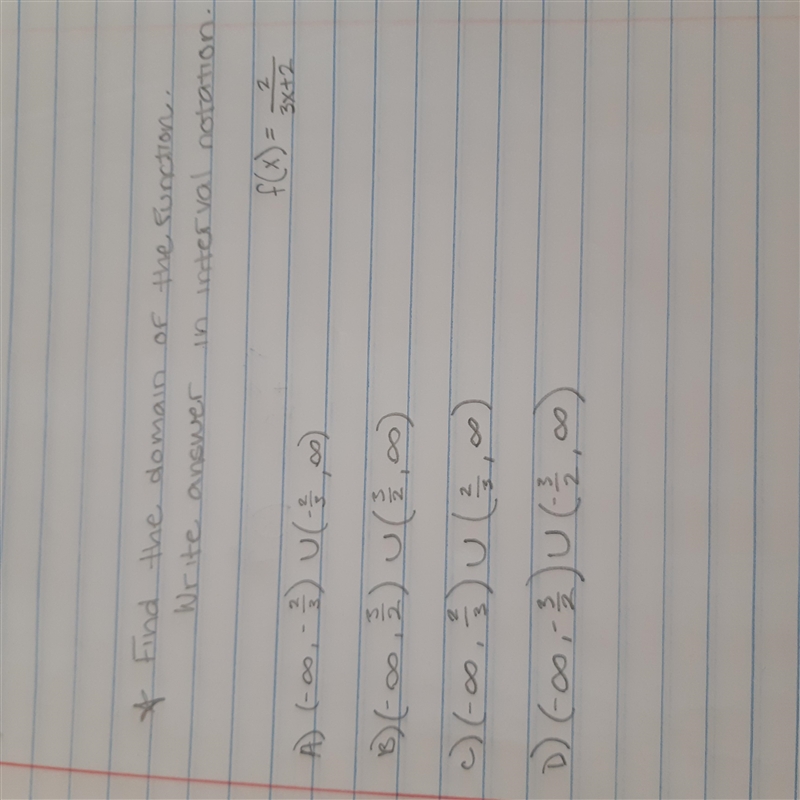 * Find the domain of the function.
Write answer in interval notation.
f(x) = 2/3x+2
A) (-∞, -2/3) ∪ (-2/3, ∞)
B) (-∞, 3/2) ∪ (3/2, ∞)
C) (-∞, 2/3) ∪ (2/3, ∞)
D) (-∞, -3/2) ∪ (-3/2, ∞)